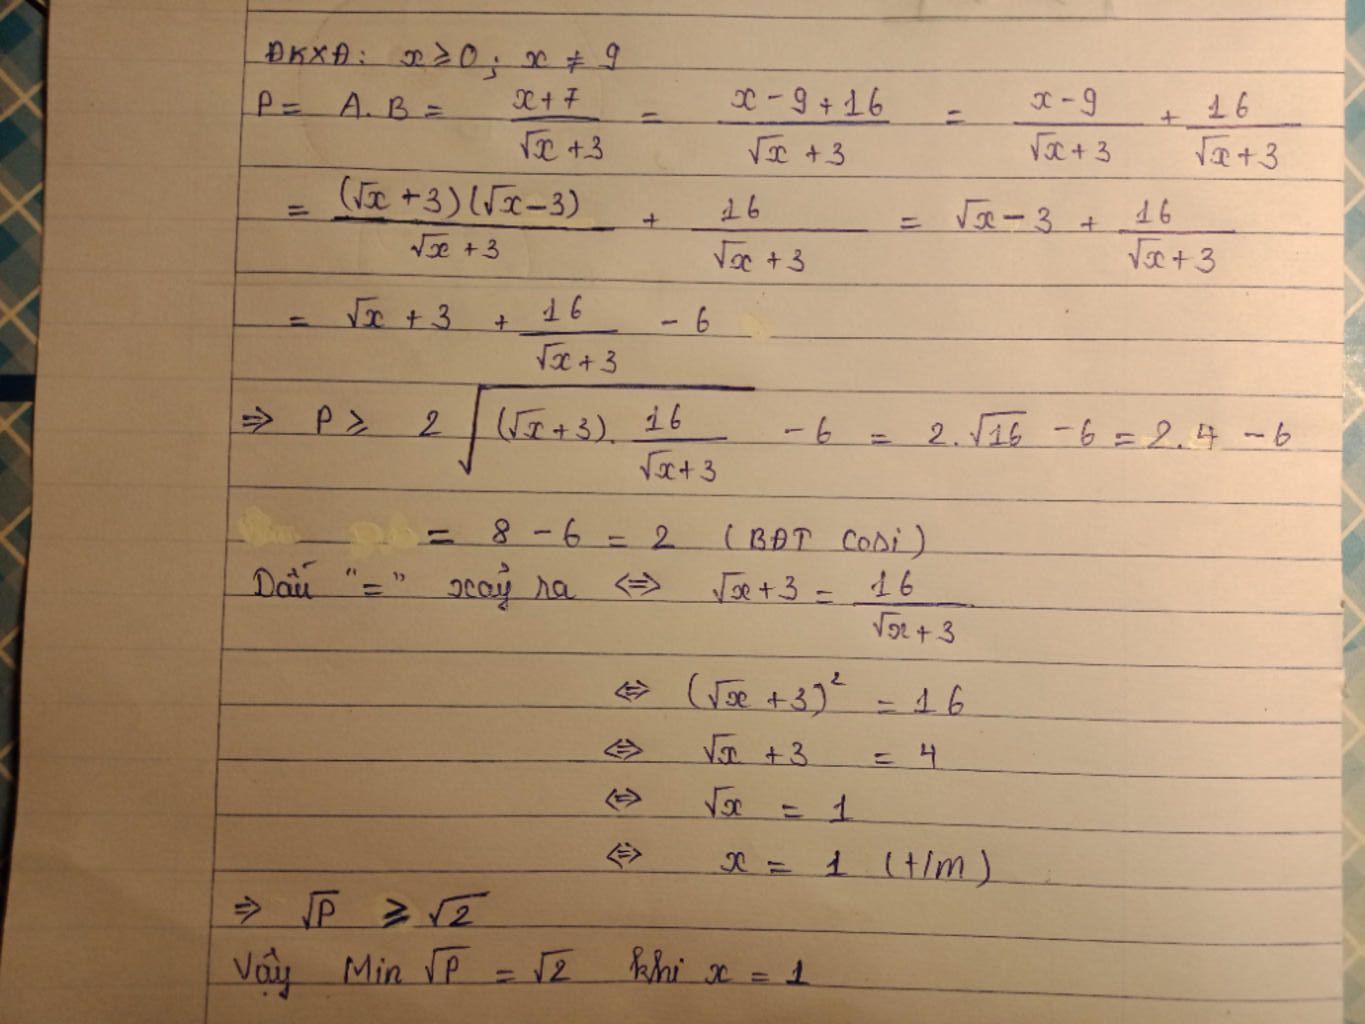 ĐKXĐ: x ≥ 0; x ≠ 9
P = A.B = (x+7)/(√x+3) = (x-9+16)/(√x+3) = (x-9)/(√x+3) + 16/(√x+3)
= ((√x+3)(√x-3))/(√x+3) + 16/(√x+3) = √x-3 + 16/(√x+3)
= √x+3 + 16/(√x+3) - 6
⇒ P ≥ 2√((√x+3).16/(√x+3)) - 6 = 2.√16 - 6 = 2.4 - 6
= 8 - 6 = 2 (BĐT Cosi)
Dấu "=" xảy ra ⇔ √x+3 = 16/(√x+3)
⇔ (√x+3)² = 16
⇔ √x+3 = 4
⇔ √x = 1
⇔ x = 1 (t/m)
⇒ √P ≥ √2
Vậy Min √P = √2 khi x = 1